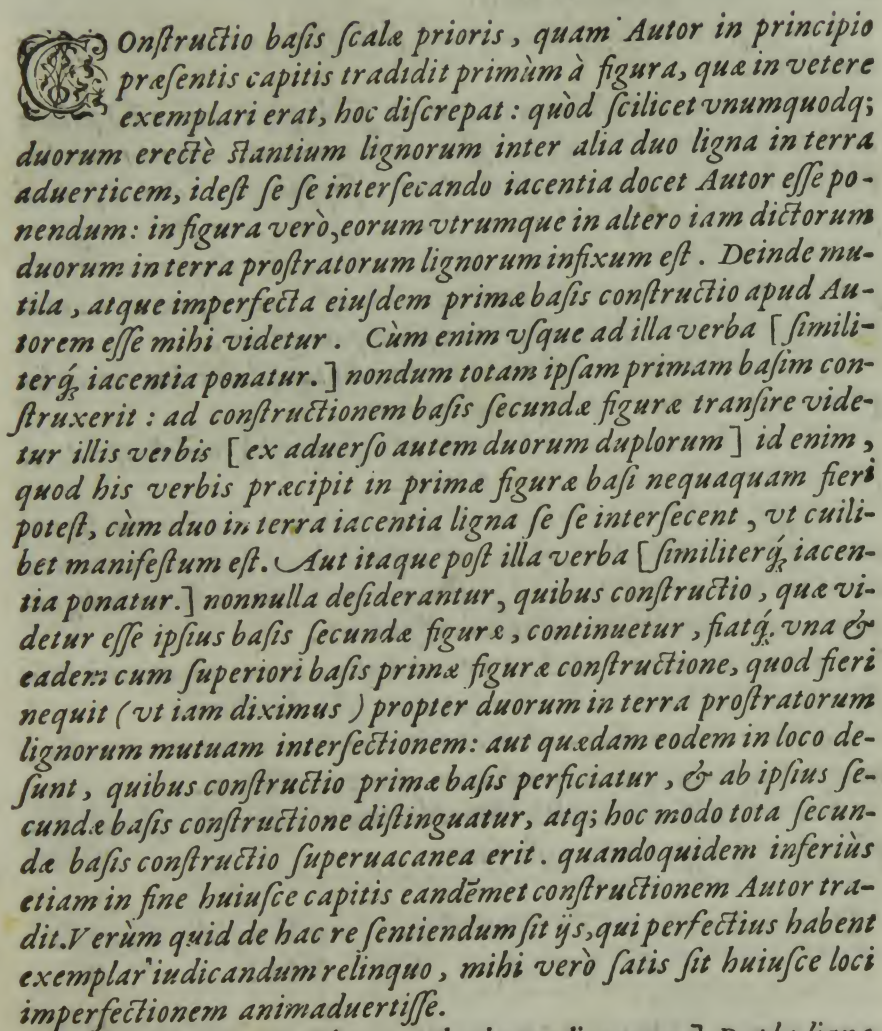 COnſtructio baſis ſcalæ prioris, quam Autor in principio
præſentis capitis tradidit primùm à figura, quæ in vetere
exemplari erat, hoc diſcrepat: quòd ſcilicet vnumquodq;
duorum erectè ſtantium lignorum inter alia duo ligna in terra
aduerticem, ideſt ſe ſe interſecando iacentia docet Autor eſſe po-
nendum: in figura verò, eorum vtrumque in altero iam dictorum
duorum in terra proſtratorum lignorum infixum eſt. Deinde mu-
tila, atque imperfecta eiuſdem primæ baſis conſtructio apud Au-
torem eſſe mihi videtur. Cùm enim vſque ad illa verba [ſimili-
terq́; iacentia ponatur.] nondum totam ipſam primam baſim con-
ſtruxerit: ad conſtructionem baſis ſecundæ figuræ tranſire vide-
tur illis verbis [ex aduerſo autem duorum duplorum] id enim,
quod his verbis præcipit in primæ figuræ baſi nequaquam fieri
poteſt, cùm duo in terra iacentia ligna ſe ſe interſecent, vt cuili-
bet manifeſtum eſt. Aut itaque poſt illa verba [ſimiliterq́; iacen-
tia ponatur.] nonnulla deſiderantur, quibus conſtructio, quæ vi-
detur eſſe ipſius baſis ſecundæ figuræ, continuetur, fiatq́. vna &
eadem cum ſuperiori baſis primæ figuræ conſtructione, quod fieri
nequit (vt iam diximus) propter duorum in terra proſtratorum
lignorum mutuam interſectionem: aut quædam eodem in loco de-
ſunt, quibus conſtructio primæ baſis perficiatur, & ab ipſius ſe-
cundæ baſis conſtructione diſtinguatur, atq; hoc modo tota ſecun-
dæ baſis conſtructio ſuperuacanea erit. quandoquidem inferiùs
etiam in fine huiuſce capitis eandẽmet conſtructionem Autor tra-
dit. Verùm quid de hac re ſentiendum ſit ijs, qui perfectius habent
exemplar iudicandum relinquo, mihi verò ſatis ſit huiuſce loci
imperfectionem animaduertiſſe.